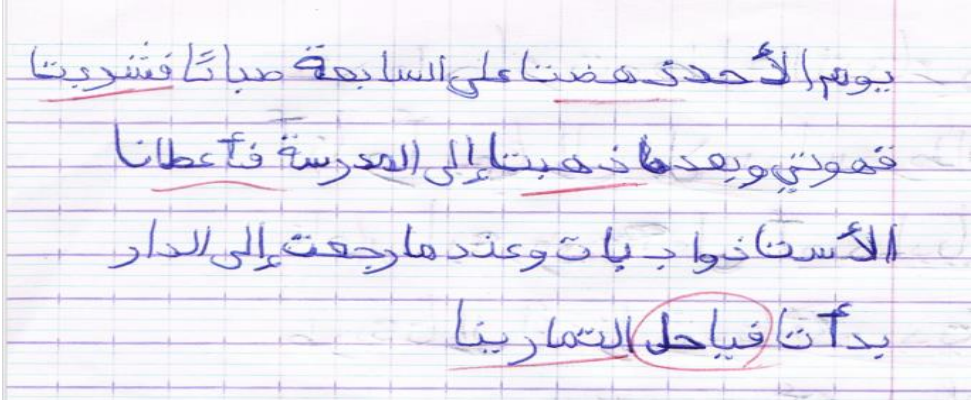 يوم الأحد نهضتا على السابعة صباتًا فشربتا
قهوتي وبعدها ذهبتا إلى المدرسة فأعطانا
الأستاذ وا جبات وعند ما رجعت إلى الدار
بدأتا فياحل التمارينا